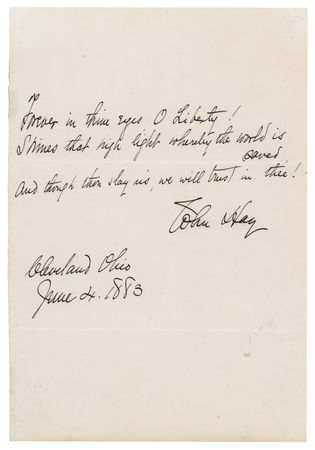 Forever in thine eyes O Liberty!
Shines that high light whereby the world is
saved
And though thou slay us, we will trust in thee!
John Hay
Cleveland Ohio
June 4. 1883